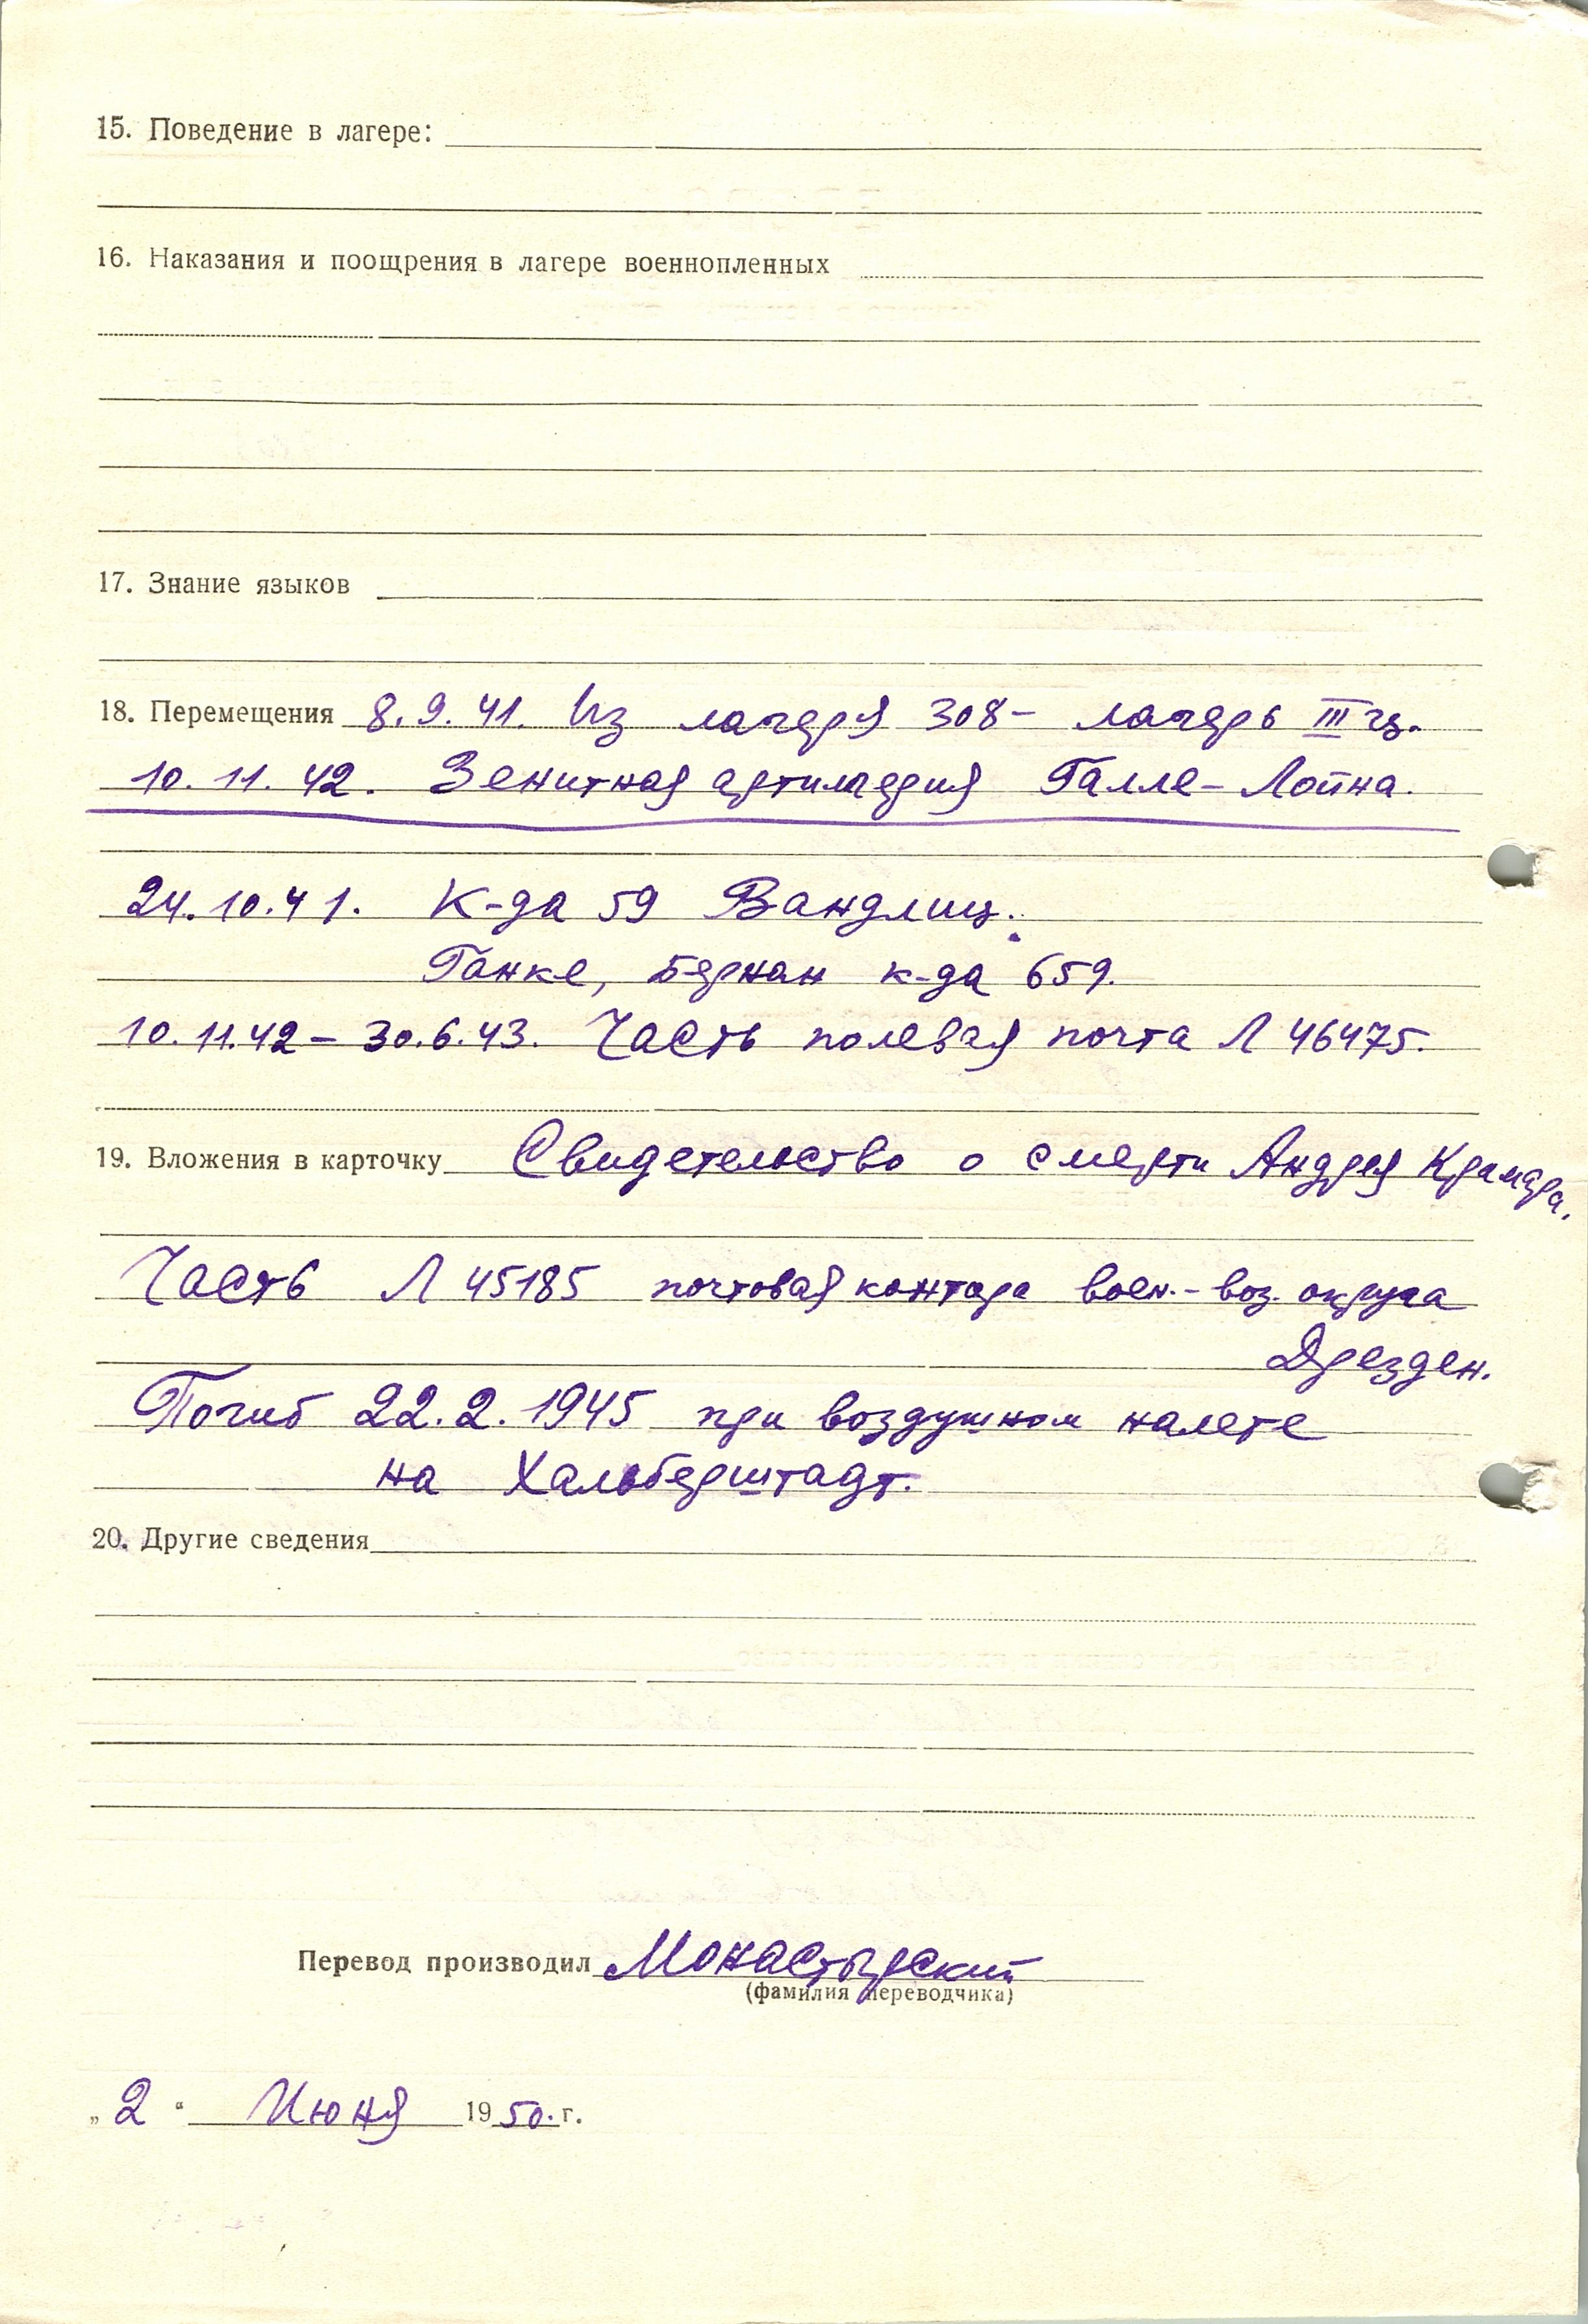 15. Поведение в лагере:
16. Наказания и поощрения в лагере военнопленных
17. Знание языков
18. Перемещения 8.9.41. Из лагеря 308 - лагерь III ц.
10.11.42. Зенитная артиллерия Галле-Лойна.
24.10.41. К-да 59 Вандлиц.
Ганке, Бернау к-да 659.
10.11.42 - 30.6.43. Часть полевая почта Л 46475.
19. Вложения в карточку Свидетельство о смерти Андрея Крамара.
Часть Л 45185 почтовая контора воен.-воз. округа
Дрезден.
Погиб 22.2.1945 при воздушном налете
на Хальберштадт.
20. Другие сведения
Перевод производил Монастырский
(фамилия переводчика)
„2“ Июня 1950. г.